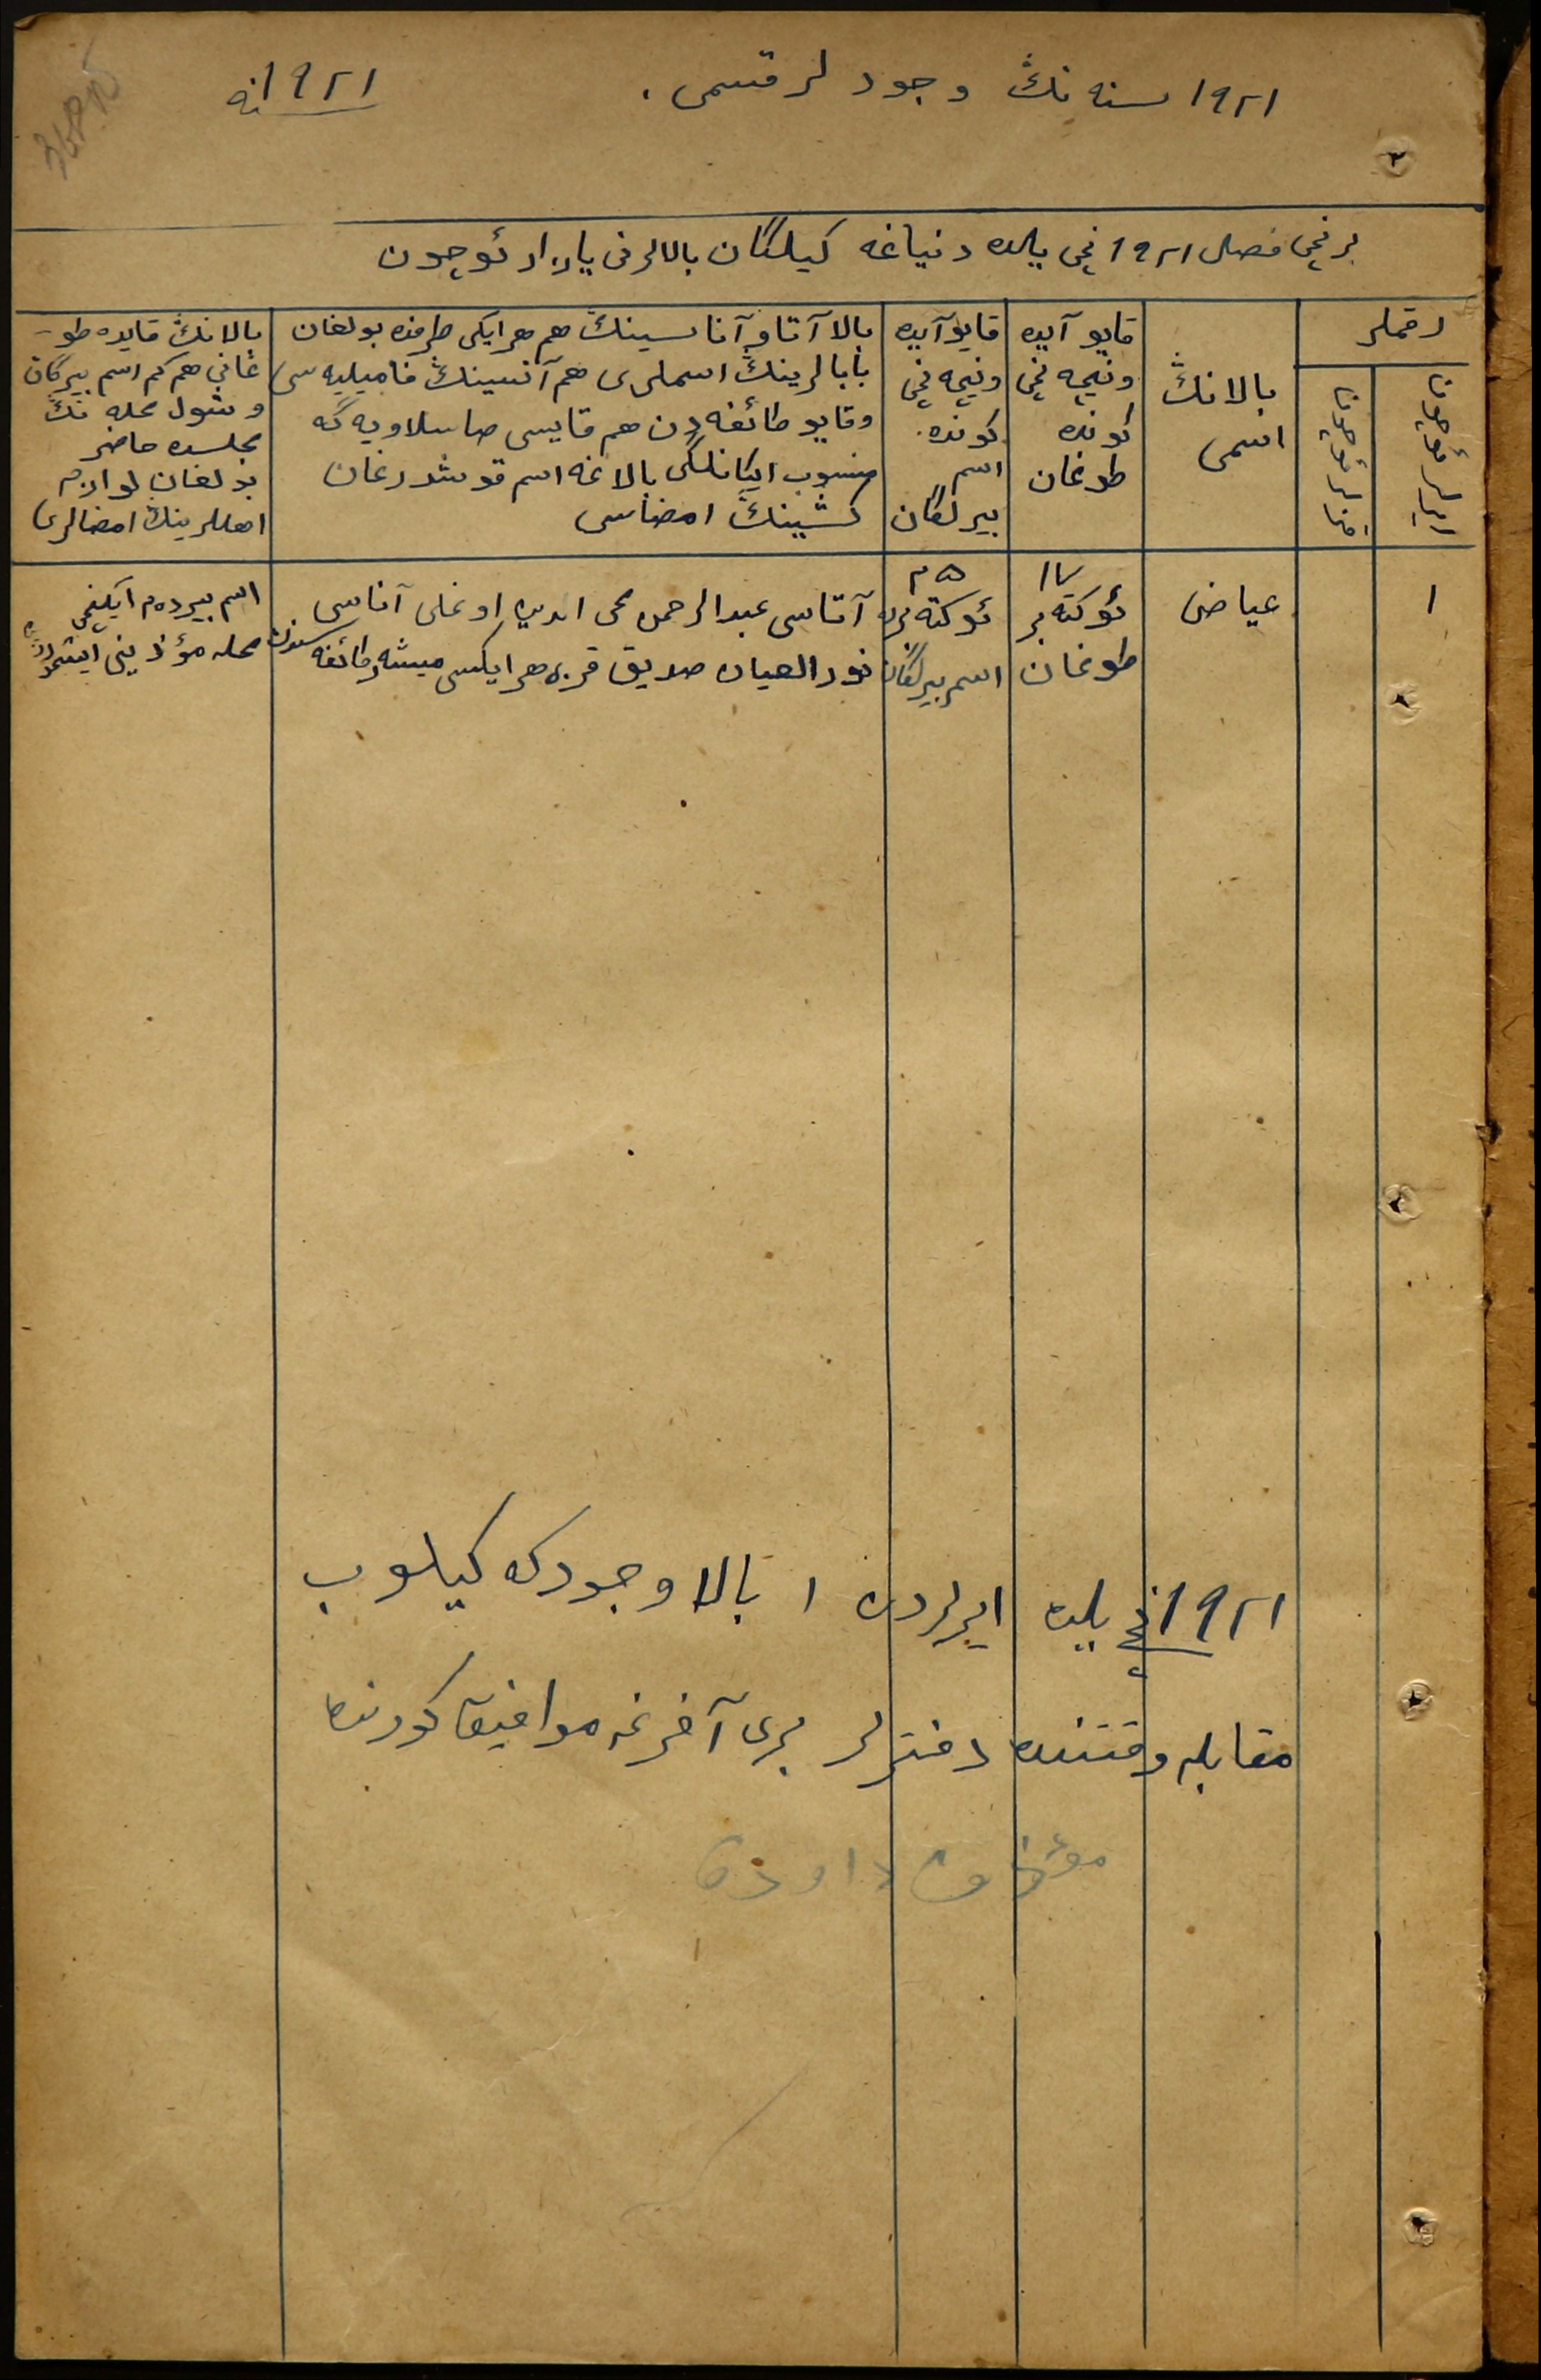 ١٩٢١ سنه نڭ وجودلر قسمی.
١٩٢١نه
برنچی فصل ١٩٢١ نچی یلده دنیاغه کیلگان بالالرنی یازار ئوچون
رقملر
ایرلر ئوچون
قزلر ئوچون
بالانڭ
اسمی
قایو آیده
ونیچه نچی
کونده
طوغان
قایو آیده
ونیچه نچی
کونده
اسم
بیرلگان
بالا آتا و آناسینڭ هم هر ایکی طرفده بولغان
بابالرینڭ اسملری هم آتسینڭ فامیلیه سی
وقایو طائفه دن هم قایسی صاسلاویه گه
منسوب ایکانلگی بالاغه اسم قوشدرغان
کشینڭ امضاسی
بالانڭ قایده طو-
غانی هم کم اسم بیرگان
وشول محله نڭ
مجلسده حاضر
بولغان لوازم
اهللرینڭ امضالری
١
عیاض
١٧
ئوکتەبر
طوغان
٢٥
ئوکتەبرده
اسم بیرلگان
آتاسی عبدالرحمن محی الدین اوغلی آناسی
نورالعیان صدیق قزی هر ایکسی میشر طائفه سندن
اسم بیردم ایکنچی
محله مؤذینی
١٩٢١نچی یلده ایرلردن ١ بالا وجودکه کیلوب
مقابله وقتنده دفترلر بری آخرغه موافیق کورنده
مؤذن داودف